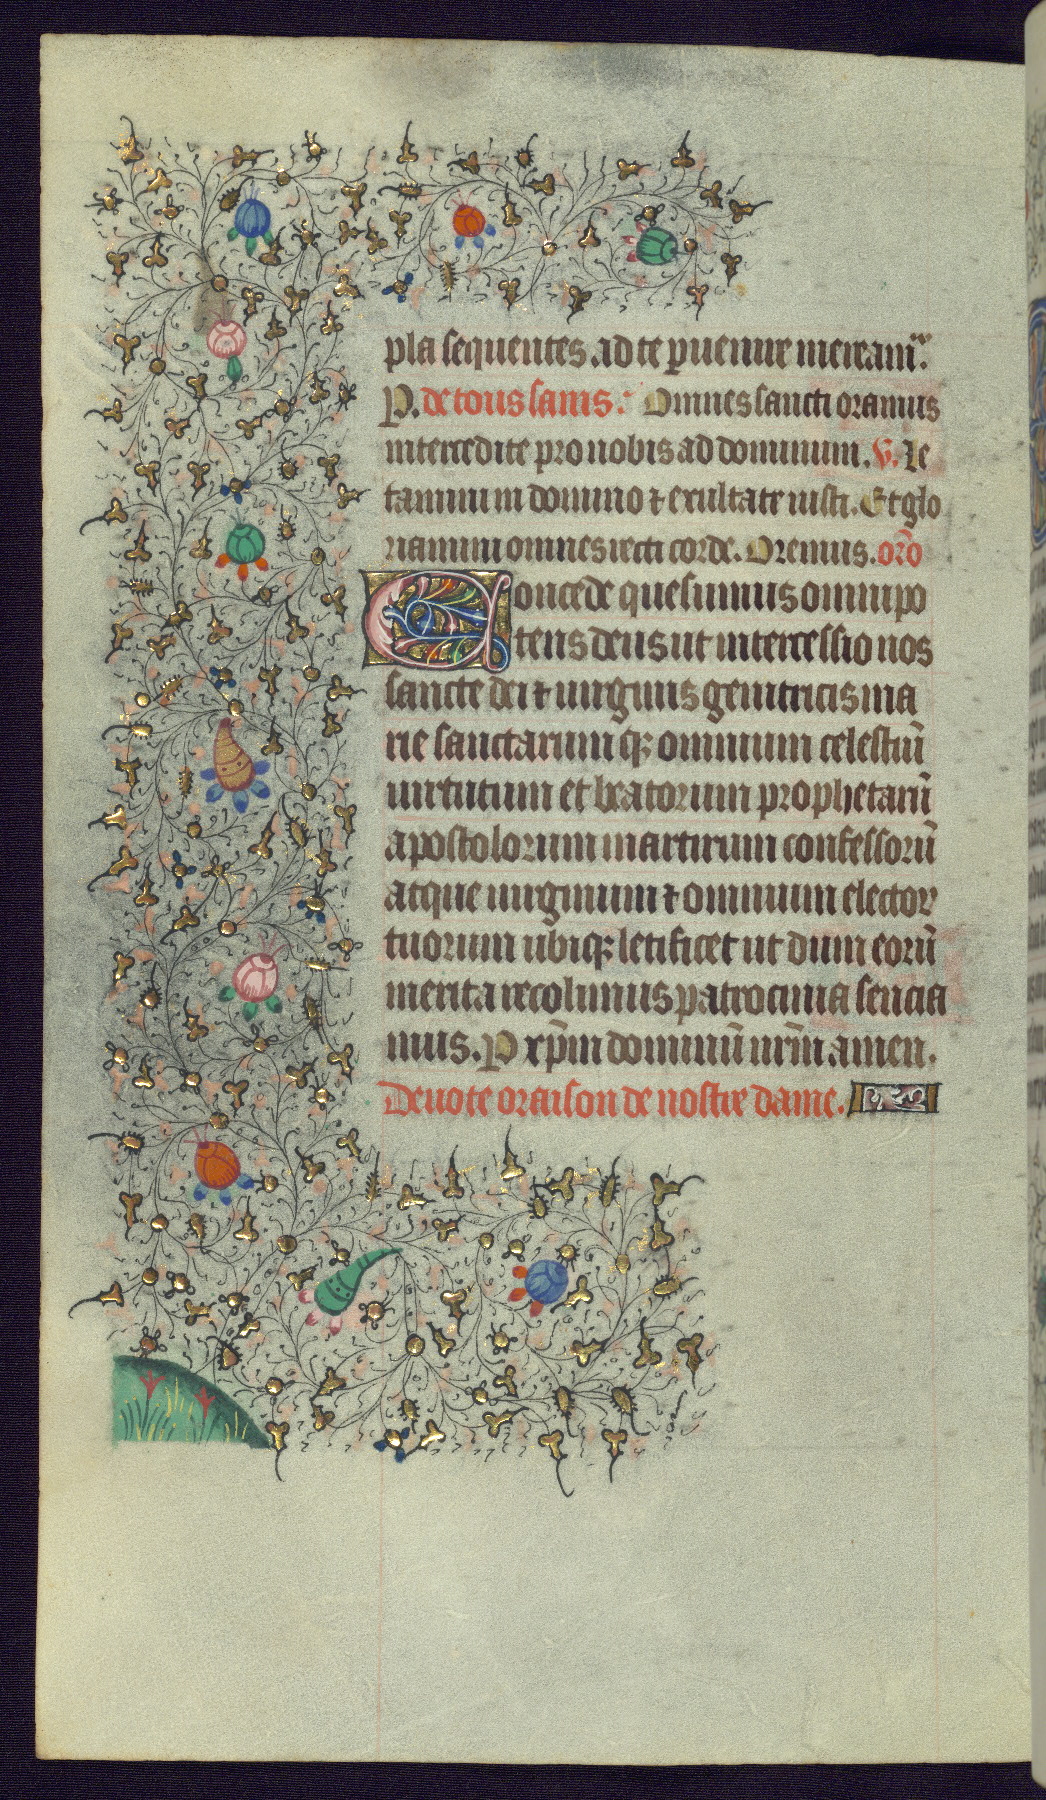 pla sequentes. ad te puenire mereami͂.
P. de tous sains: Omnes sancti oramus
intercedite pro nobis ad dominum. V. Le
tamini in domino ⁊ exultate iusti. Et glo
riamini omnes recti corde. Oremus. or͂o
Concede quesumus omnipo
tens deus ut intercessio nos
sancte dei ⁊ uirginis genitricis ma
rie sanctarum qꝫ omnium celestiu͂
uirtutum et beatorum prophetaru͂
apostolorum martirum confessoru͂
atque uirginum ⁊ omnium elector
tuorum ubiqꝫ letificet ut dum eoru͂
merita recolimus patrocinia sencia
mus. P xp͂m dominu͂ nr͂m. amen.
Deuote oraison de nostre dame.